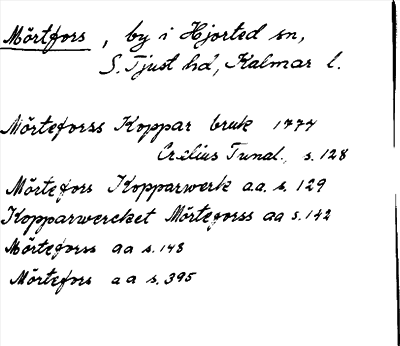 Mörtfors, by i Hjorted sn,
S. Tjust hd, Kalmar l.
Mörteforss Koppar bruk 1774
Crælius Tunal. s. 128
Mörtefors Kopparwerk aa. s. 129
Kopparwercket Mörteforss aa s. 142
Mörteforss aa s. 148
Mörtefors aa s. 395